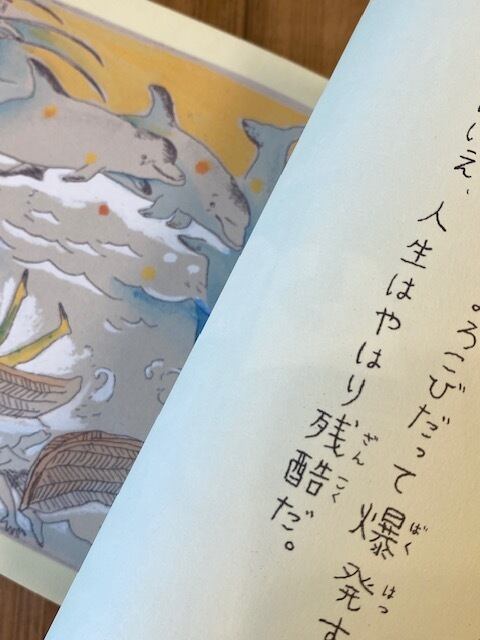 ろこびだって爆発す
ばく はつ
いえ、人生はやはり残酷だ。
ざん こく